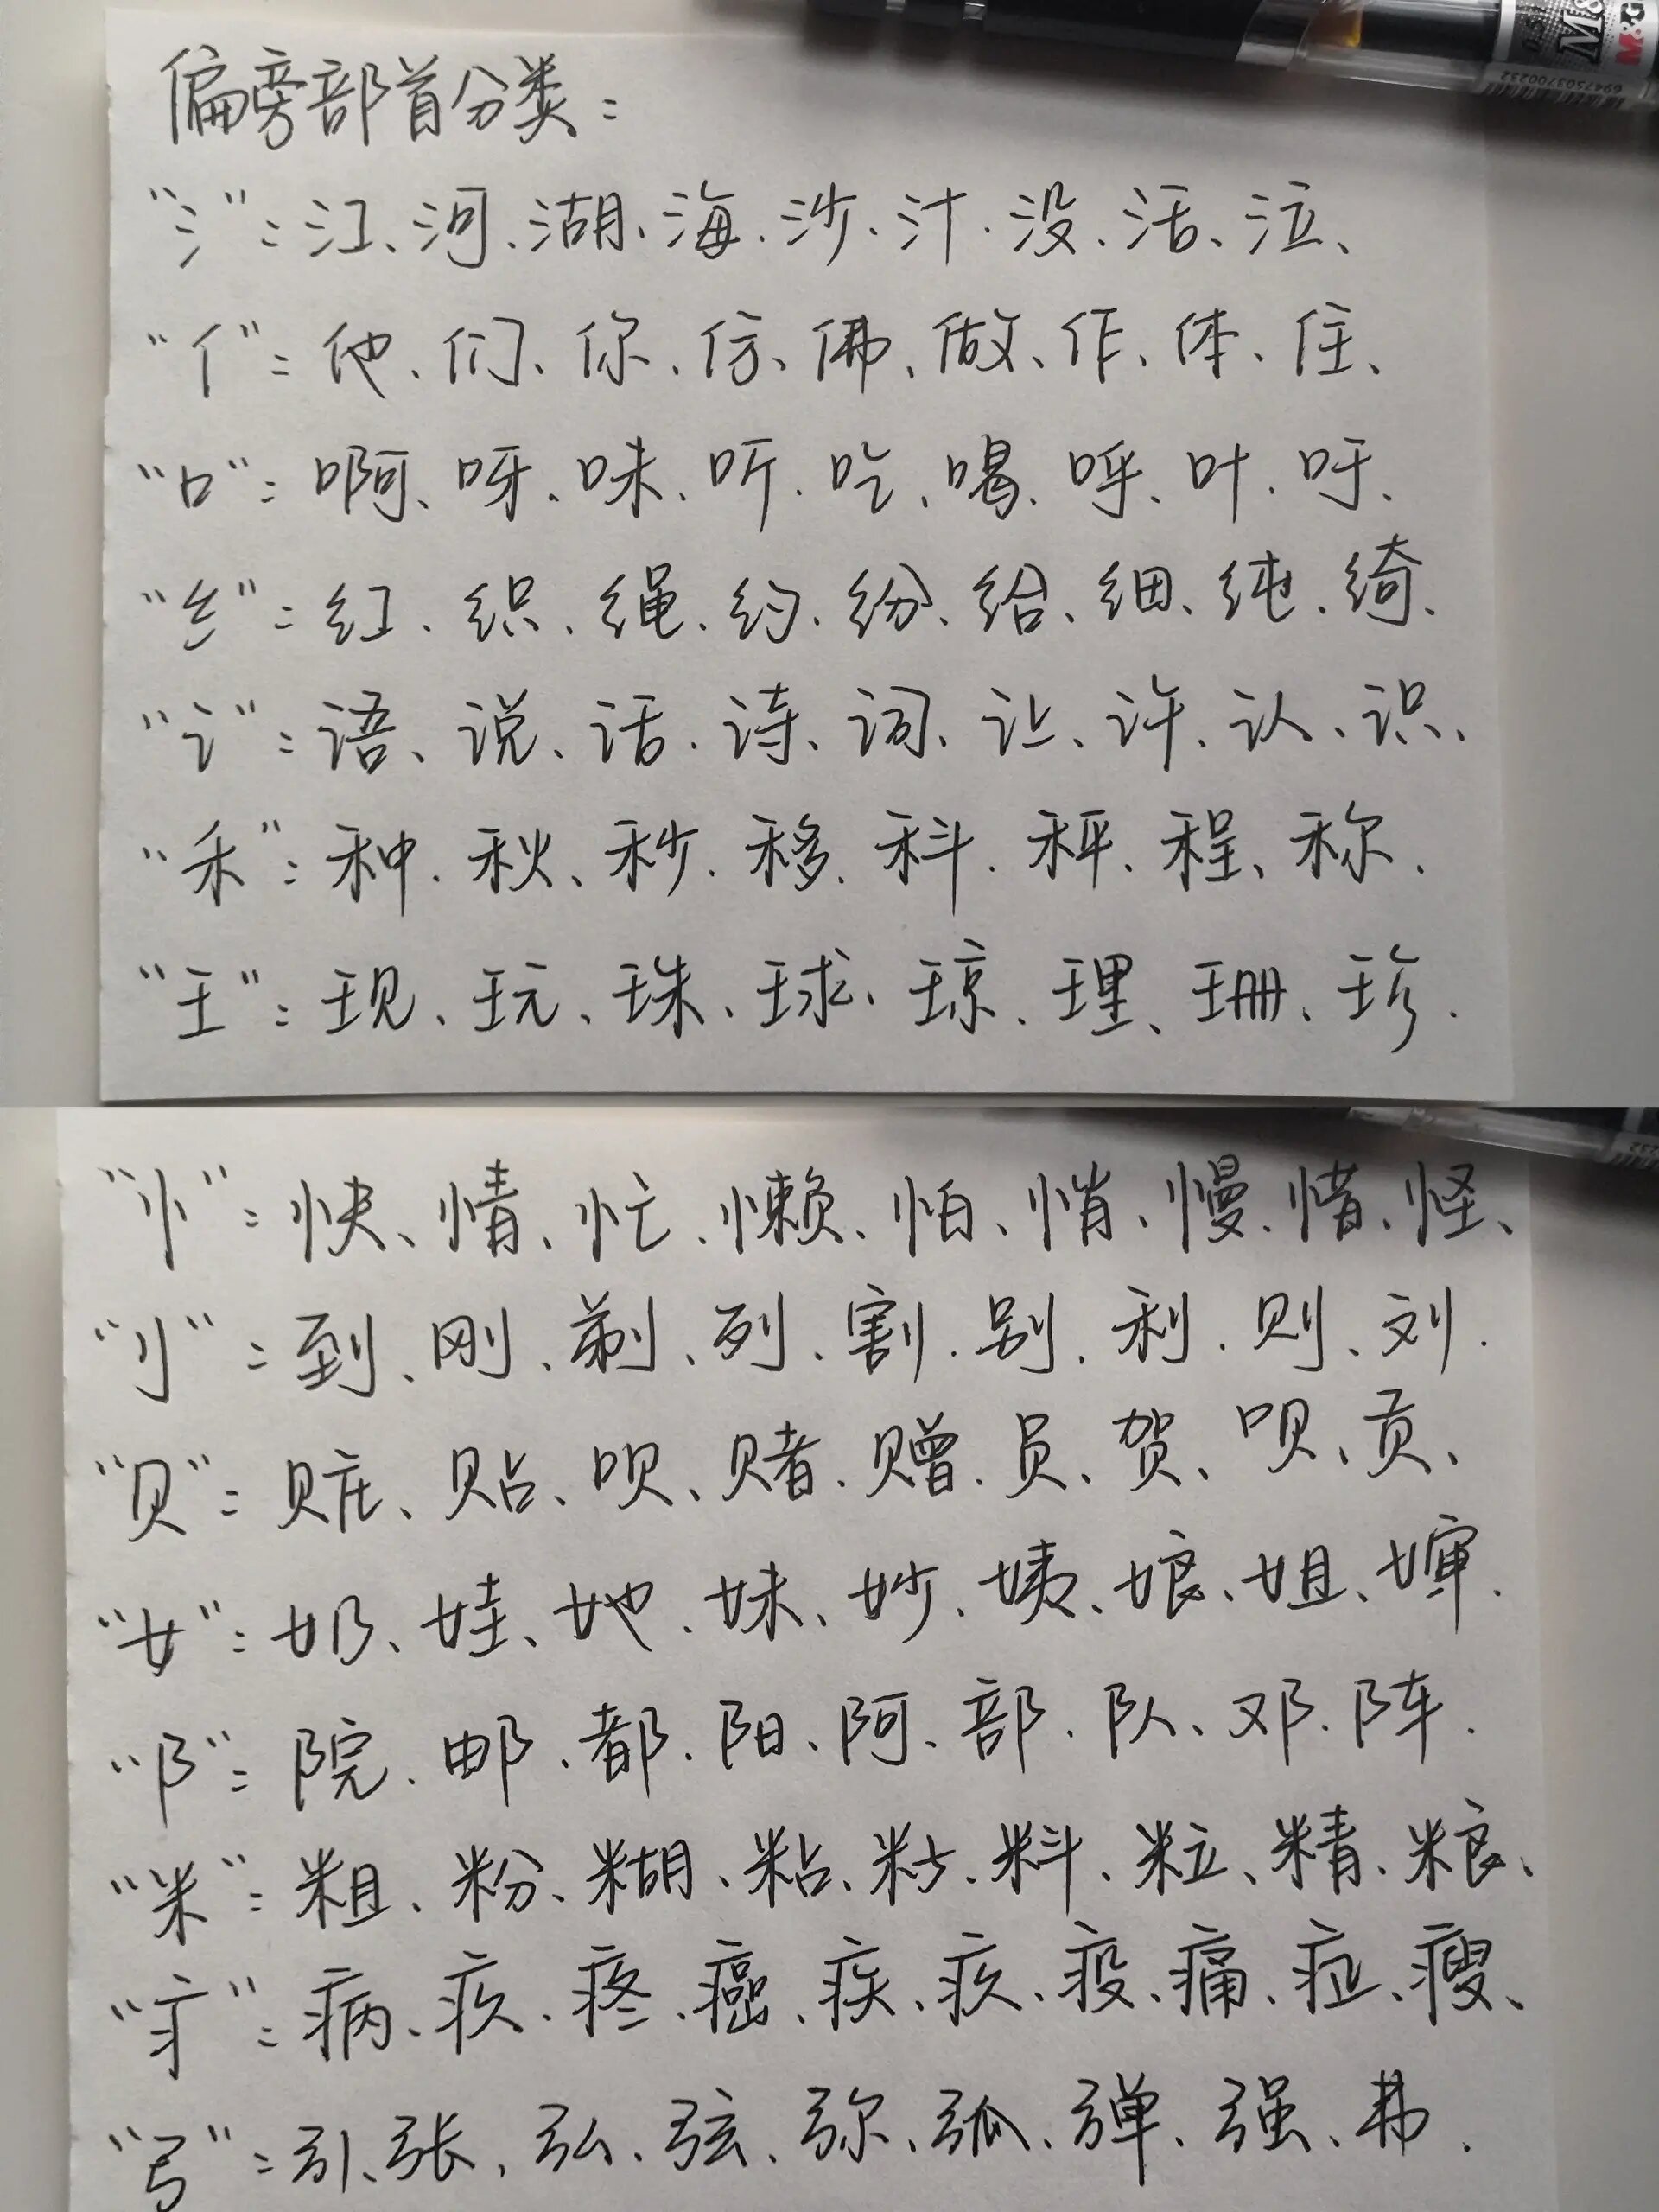 M&G
6947503700232
偏旁部首分类：
“氵”：江、河、湖、海、沙、汁、没、活、泣、
“亻”：他、们、你、仿、佛、做、作、体、住、
“口”：啊、呀、味、听、吃、喝、呼、叶、吁、
“纟”：红、织、绳、约、纷、给、细、纯、绮、
“讠”：语、说、话、诗、词、让、许、认、识、
“禾”：种、秋、秒、移、科、秤、程、称、
“王”：现、玩、珠、球、琼、理、珊、珍、
“忄”：快、情、忙、懒、怕、悄、慢、惜、怪、
“刂”：到、刚、剃、列、割、别、利、则、刘、
“贝”：赃、贴、呗、赌、赠、员、贺、呗、贡、
“女”：奶、娃、她、妹、妙、姨、娘、姐、婶、
“阝”：院、邮、都、阳、阿、部、队、邓、阵、
“米”：粗、粉、糊、粘、籽、料、粒、精、粮、
“疒”：病、疚、疼、癌、疾、疚、疫、痛、症、瘦、
“弓”：引、张、弘、弦、弥、弧、弹、强、弗、